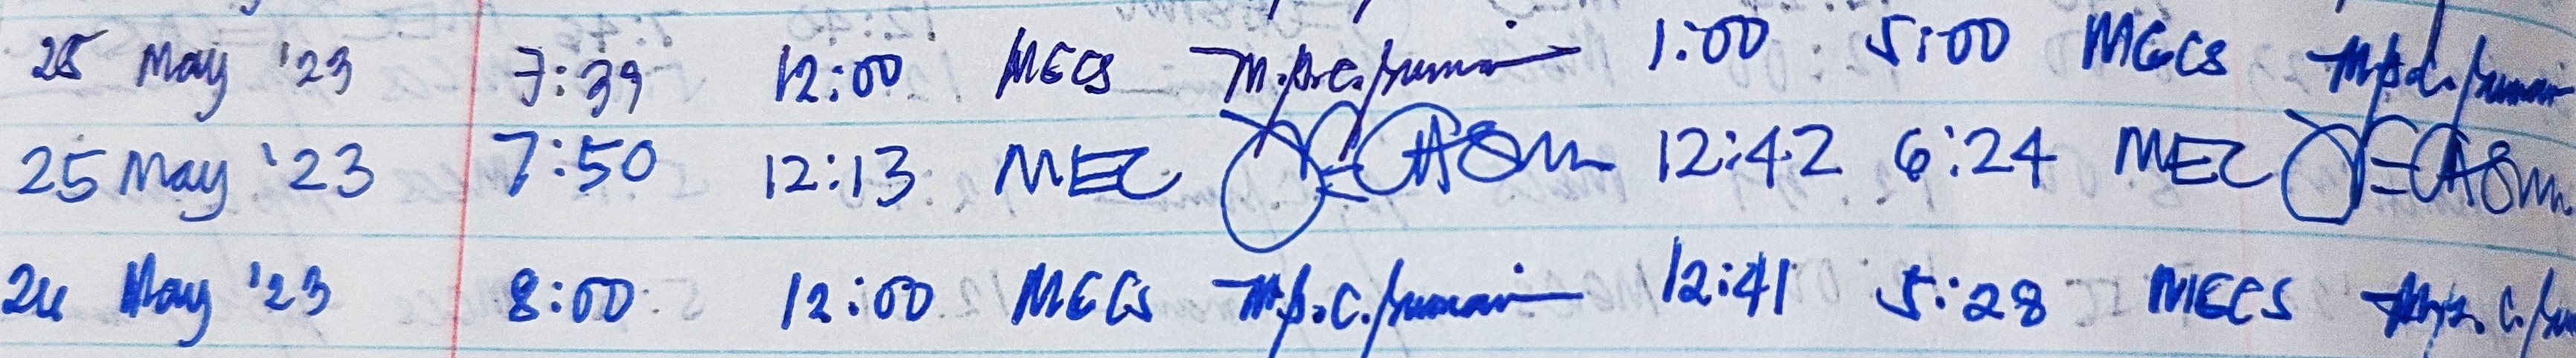 25 May '23 7:39 12:00 MECS 1:00 5:00 MECS
25 May '23 7:50 12:13 MEC 12:42 6:24 MEC
24 May '23 8:00 12:00 MECS 12:41 5:28 MECS